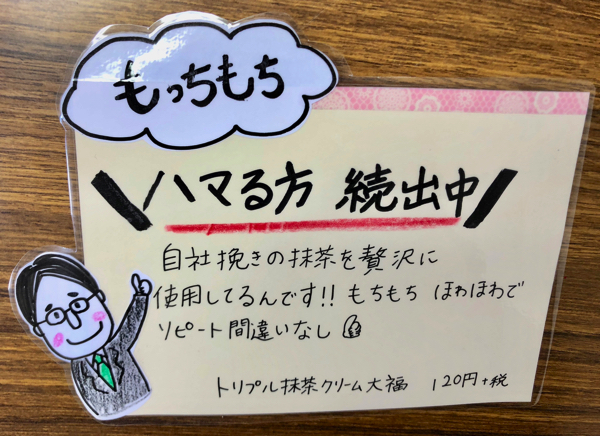 もっちもち
ハマる方 続出中
自社挽きの抹茶を贅沢に
使用してるんです!! もちもち ほわほわで
リピート間違いなし
トリプル抹茶クリーム大福 120円+税